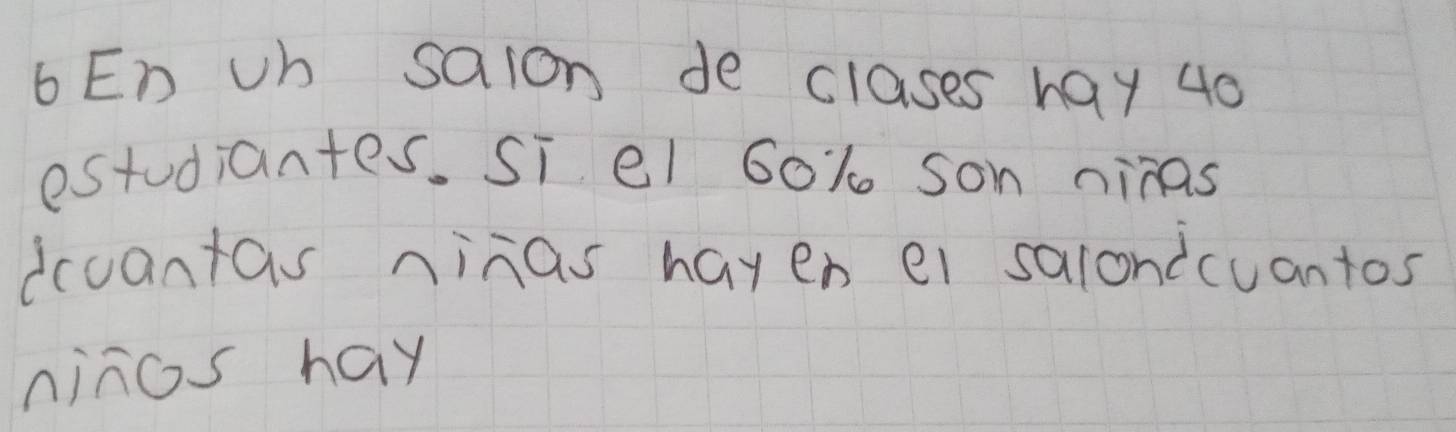 6 En un salon de clases hay 40
estudiantes. Si el 60% son niñas
¿cuantas niñas hay en el salon ¿cuantos
niños hay